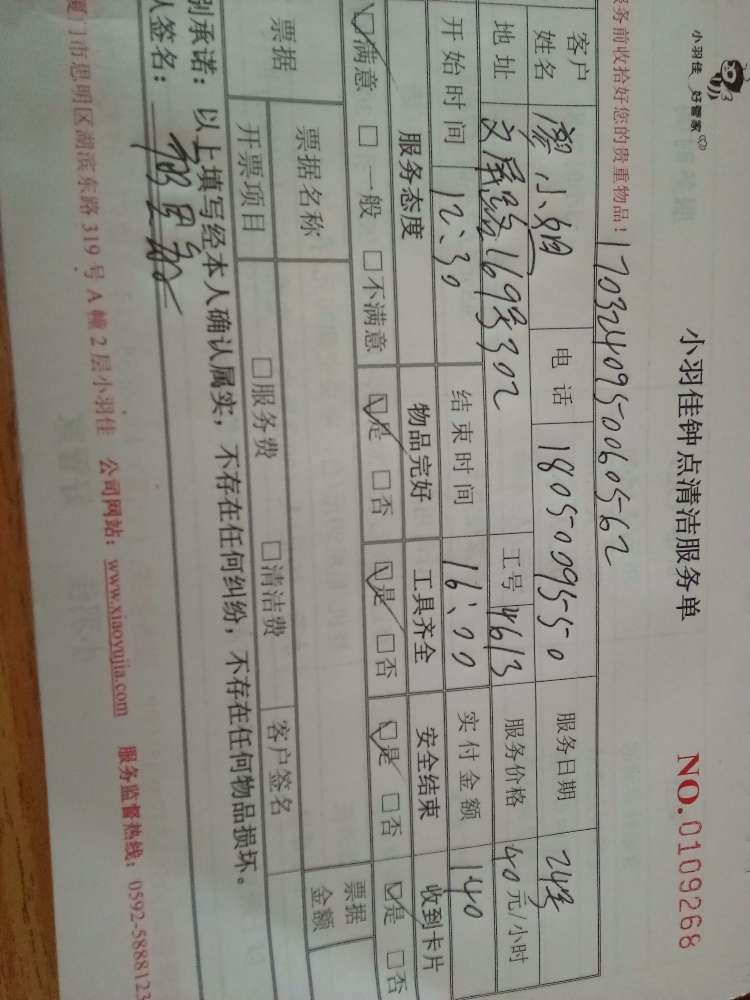 小羽佳 好管家
小羽佳钟点清洁服务单
NO.0109268
务前收拾好您的贵重物品!
1703240950060562
客户姓名 廖小姐 电话 18050095550 服务日期 24号
地址 文屏路169号302 工号 4613 服务价格 40元/小时
开始时间 12:30 结束时间 16:00 实付金额 140
服务态度 物品完好 工具齐全 安全结束 收到卡片
☑满意 □一般 □不满意 ☑是 □否 ☑是 □否 ☑是 □否 ☑是 □否
票据 票据名称 票据金额
开票项目 □服务费 □清洁费 客户签名
别承诺:以上填写经本人确认属实,不存在任何纠纷,不存在任何物品损坏。
人签名:
厦门市思明区湖滨东路319号A幢2层小羽佳 公司网站:www.xiaoyujia.com 服务监督热线:0592-5888123